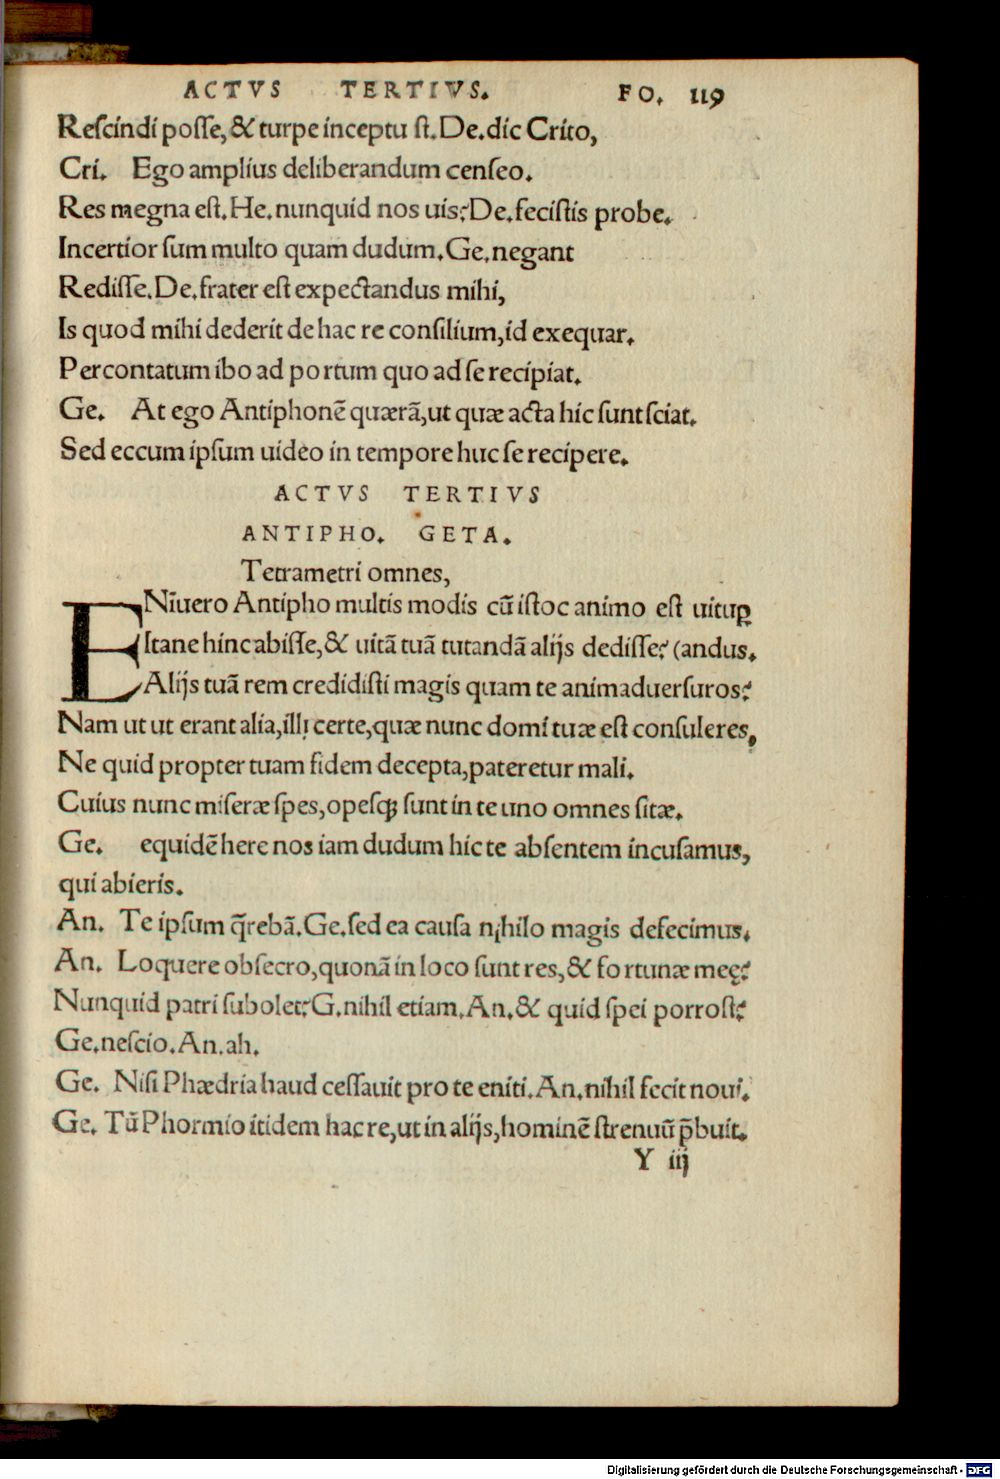 ACTVS TERTIVS. FO. 119
Reſcindi poſſe, & turpe inceptu ſt. De. dic Crito,
Cri. Ego amplius deliberandum cenſeo.
Res megna eſt. He. nunquid nos uis? De. feciſtis probe.
Incertior ſum multo quam dudum. Ge. negant
Rediſſe. De. frater eſt expectandus mihi,
Is quod mihi dederit de hac re conſilium, id exequar.
Percontatum ibo ad portum quo ad ſe recipiat.
Ge. At ego Antiphonē quærā, ut quæ acta hic ſunt ſciat.
Sed eccum ipſum uideo in tempore huc ſe recipere.
ACTVS TERTIVS
ANTIPHO. GETA.
Tetrametri omnes,
ENīuero Antipho multis modis cū iſtoc animo eſt uituꝑ
Itane hinc abiſſe, & uitā tuā tutandā alijs dediſſe? (andus.
Alijs tuā rem credidiſti magis quam te animaduerſuros?
Nam ut ut erant alia, illi certe, quæ nunc domi tuæ eſt conſuleres,
Ne quid propter tuam fidem decepta, pateretur mali.
Cuius nunc miſeræ ſpes, opeſqꝫ ſunt in te uno omnes ſitæ.
Ge. equidē here nos iam dudum hic te abſentem incuſamus,
qui abieris.
An. Te ipſum q̄rebā. Ge. ſed ea cauſa nihilo magis defecimus.
An. Loquere obſecro, quonā in loco ſunt res, & fortunæ meę?
Nunquid patri ſubolet? G. nihil etiam. An. & quid ſpei porroſt?
Ge. neſcio. An. ah.
Ge. Niſi Phædria haud ceſſauit pro te eniti. An. nihil fecit noui.
Ge. Tū Phormio itidem hac re, ut in alijs, hominē ſtrenuū p̄buit.
Y iij
Digitalisierung gefördert durch die Deutsche Forschungsgemeinschaft - DFG